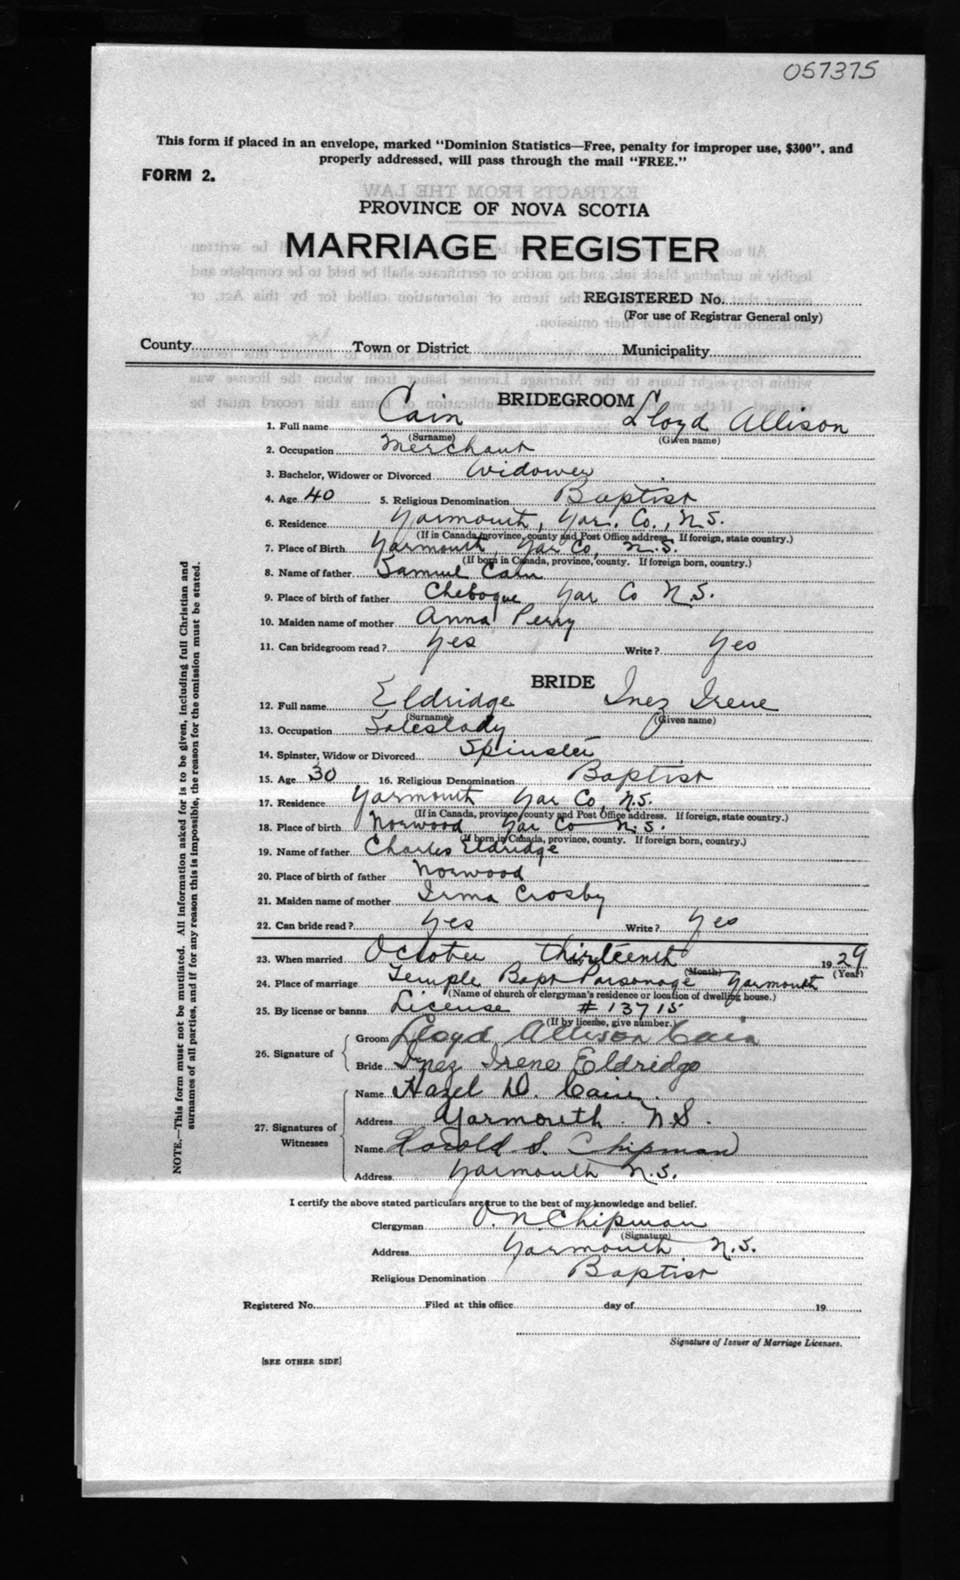 057375
This form if placed in an envelope, marked "Dominion Statistics—Free, penalty for improper use, $300", and
properly addressed, will pass through the mail "FREE."
FORM 2.
PROVINCE OF NOVA SCOTIA
MARRIAGE REGISTER
REGISTERED No.
(For use of Registrar General only)
County Town or District Municipality
BRIDEGROOM
1. Full name Cain Lloyd Allison
(Surname) (Given name)
2. Occupation Merchant
3. Bachelor, Widower or Divorced Widower
4. Age 40 5. Religious Denomination Baptist
6. Residence Yarmouth, Yar. Co., N.S.
(If in Canada, province, county and Post Office address. If foreign, state country.)
7. Place of Birth Yarmouth, Yar Co, N.S.
(If born in Canada, province, county. If foreign born, country.)
8. Name of father Samuel Cain
9. Place of birth of father Chebogue Yar Co N.S.
10. Maiden name of mother Anna Perry
11. Can bridegroom read? Yes Write? Yes
BRIDE
12. Full name Eldridge Inez Irene
(Surname) (Given name)
13. Occupation Saleslady
14. Spinster, Widow or Divorced Spinster
15. Age 30 16. Religious Denomination Baptist
17. Residence Yarmouth Yar Co, N.S.
(If in Canada, province, county and Post Office address. If foreign, state country.)
18. Place of birth Norwood Yar Co N.S.
(If born in Canada, province, county. If foreign born, country.)
19. Name of father Charles Eldridge
20. Place of birth of father Norwood
21. Maiden name of mother Irma Crosby
22. Can bride read? Yes Write? Yes
23. When married October thirteenth 1929
(Month) (Year)
24. Place of marriage Temple Bapt Parsonage Yarmouth
(Name of church or clergyman's residence or location of dwelling house.)
25. By license or banns License # 13715
(If by license, give number.)
26. Signature of Groom Lloyd Allison Cain
Bride Inez Irene Eldridge
27. Signatures of Witnesses Name Hazel D. Cain.
Address Yarmouth. N.S.
Name Harold S. Chipman
Address Yarmouth N.S.
I certify the above stated particulars are true to the best of my knowledge and belief.
Clergyman O. N. Chipman
(Signature)
Address Yarmouth N.S.
Religious Denomination Baptist
Registered No. Filed at this office day of 19
Signature of Issuer of Marriage Licenses.
[SEE OTHER SIDE]
NOTE.—This form must not be mutilated. All information asked for is to be given, including full Christian and
surnames of all parties, and if for any reason this is impossible, the reason for the omission must be stated.